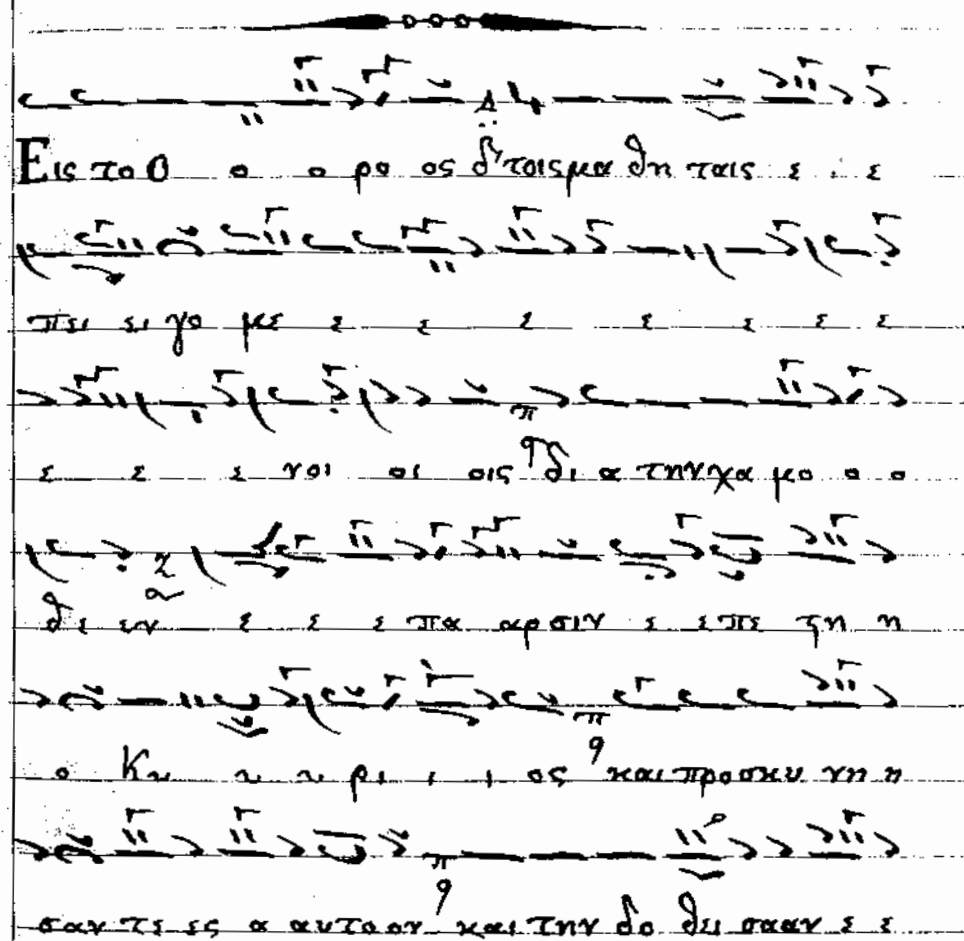 Εις το Ο ο ο ρο ος τοις μα θη ταις ε ι ε
πει ει γο με ε ε ε ε ε ε ε
ε ε ε νοι οι οις δι α την χα μο ο ο
θε εν ε ε ε πα αρ σιν ε ε πε στη η
ο Κυ υ υ ρι ι ι ος και προσκυ νη η
σαν τε ες α αυτο ον και την δο θει σααν ε ε